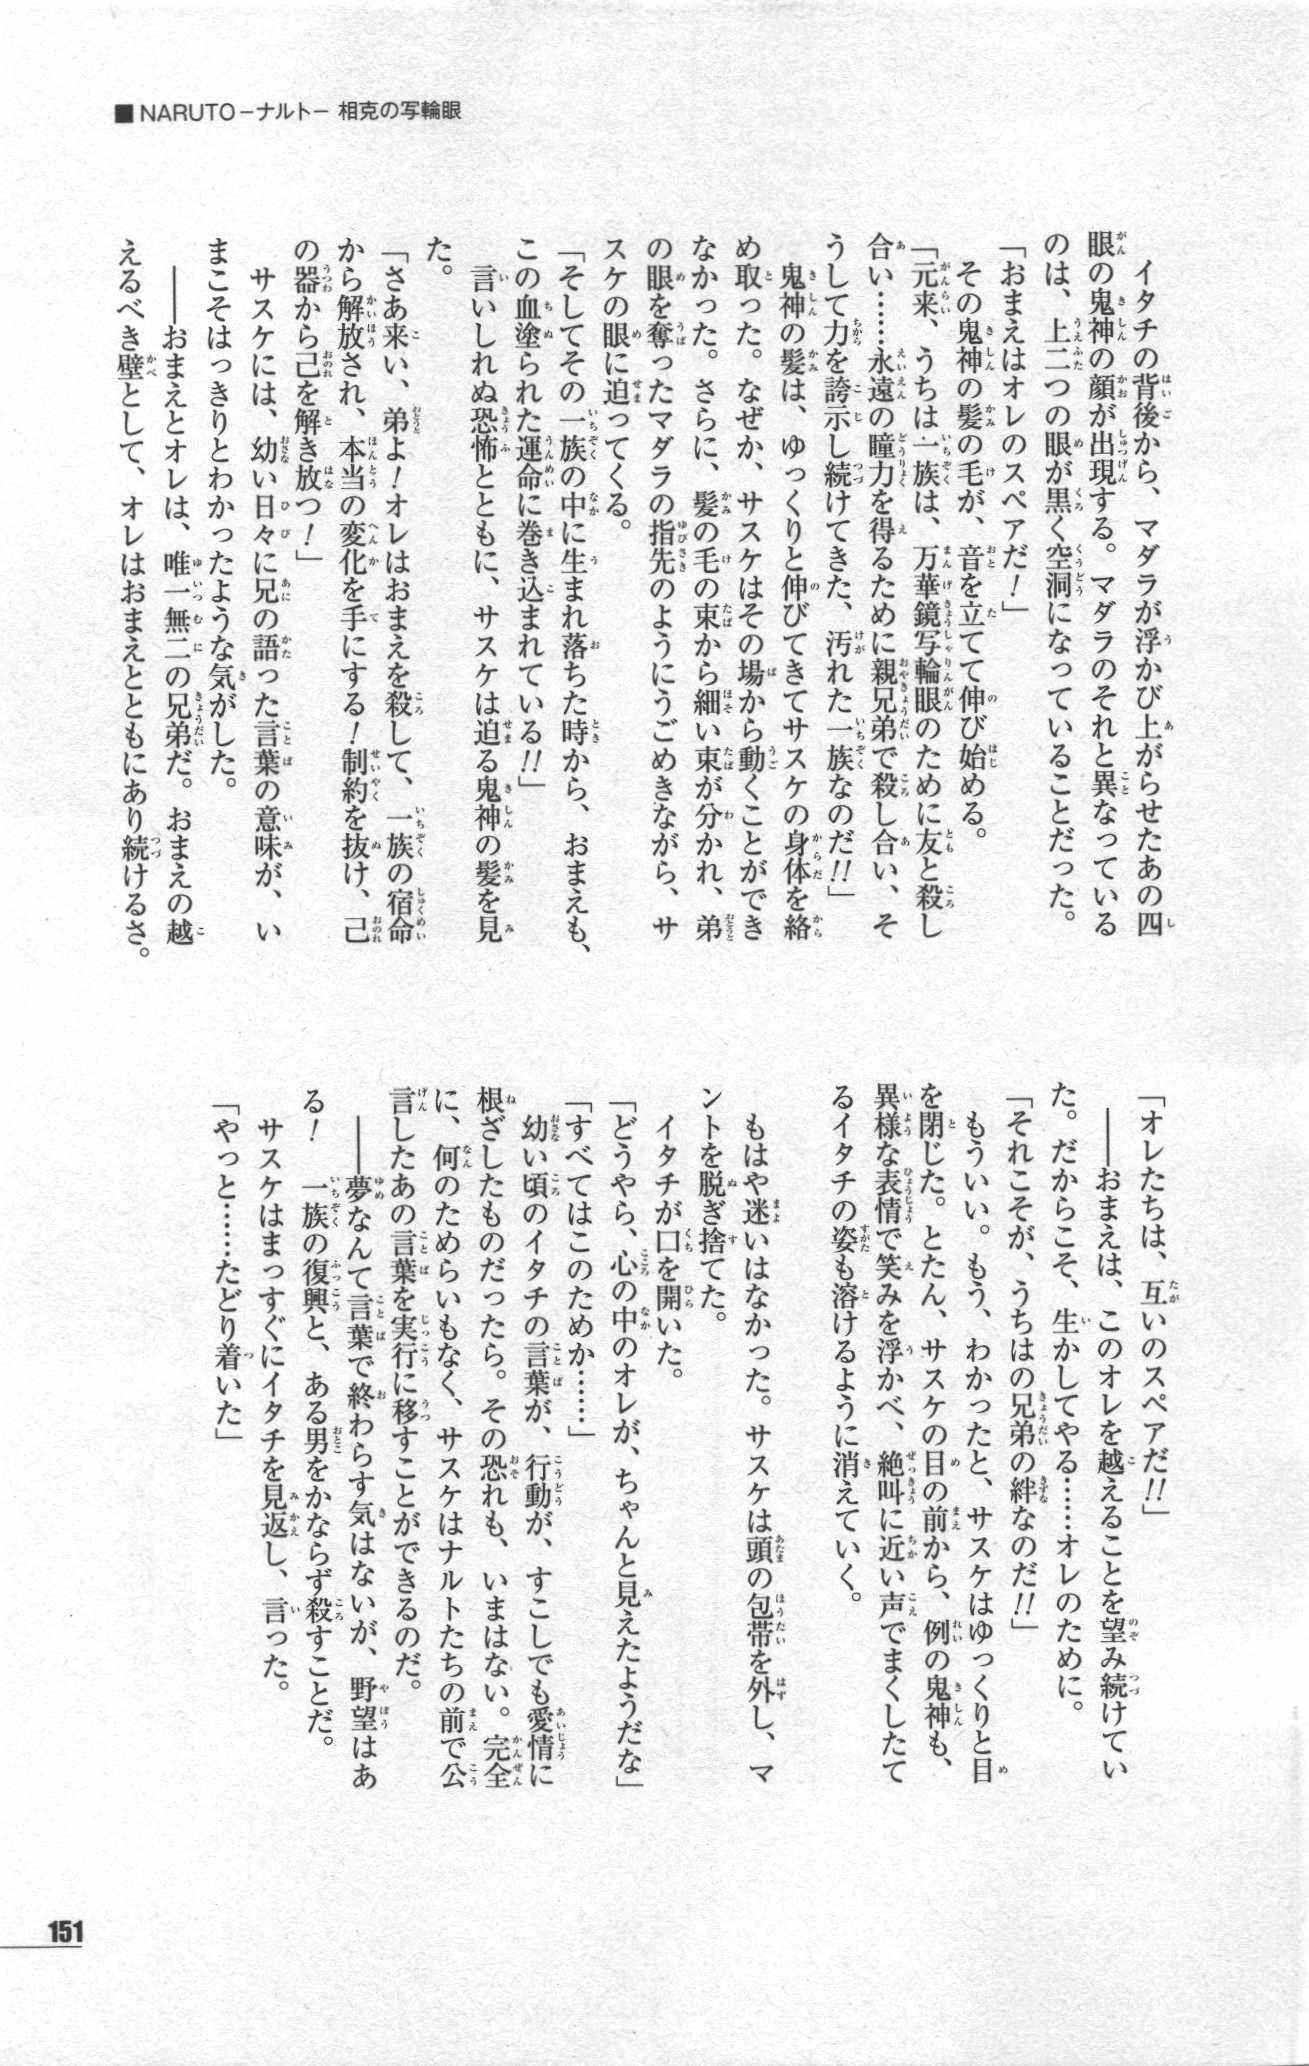 ■NARUTO－ナルト－ 相克の写輪眼
イタチの背後から、マダラが浮かび上がらせたあの四
眼の鬼神の顔が出現する。マダラのそれと異なっている
のは、上二つの眼が黒く空洞になっていることだった。
「おまえはオレのスペアだ！」
その鬼神の髪の毛が、音を立てて伸び始める。
「元来、うちは一族は、万華鏡写輪眼のために友と殺し
合い……永遠の瞳力を得るために親兄弟で殺し合い、そ
うして力を誇示し続けてきた、汚れた一族なのだ!!」
鬼神の髪は、ゆっくりと伸びてきてサスケの身体を絡
め取った。なぜか、サスケはその場から動くことができ
なかった。さらに、髪の毛の束から細い束が分かれ、弟
の眼を奪ったマダラの指先のようにうごめきながら、サ
スケの眼に迫ってくる。
「そしてその一族の中に生まれ落ちた時から、おまえも、
この血塗られた運命に巻き込まれている!!」
言いしれぬ恐怖とともに、サスケは迫る鬼神の髪を見
た。
「さあ来い、弟よ！オレはおまえを殺して、一族の宿命
から解放され、本当の変化を手にする！制約を抜け、己
の器から己を解き放つ！」
サスケには、幼い日々に兄の語った言葉の意味が、い
まこそはっきりとわかったような気がした。
――おまえとオレは、唯一無二の兄弟だ。おまえの越
えるべき壁として、オレはおまえとともにあり続けるさ。
「オレたちは、互いのスペアだ!!」
――おまえは、このオレを越えることを望み続けてい
た。だからこそ、生かしてやる……オレのために。
「それこそが、うちはの兄弟の絆なのだ!!」
もういい。もう、わかったと、サスケはゆっくりと目
を閉じた。とたん、サスケの目の前から、例の鬼神も、
異様な表情で笑みを浮かべ、絶叫に近い声でまくしたて
るイタチの姿も溶けるように消えていく。
もはや迷いはなかった。サスケは頭の包帯を外し、マ
ントを脱ぎ捨てた。
イタチが口を開いた。
「どうやら、心の中のオレが、ちゃんと見えたようだな」
「すべてはこのためか……」
幼い頃のイタチの言葉が、行動が、すこしでも愛情に
根ざしたものだったら。その恐れも、いまはない。完全
に、何のためらいもなく、サスケはナルトたちの前で公
言したあの言葉を実行に移すことができるのだ。
――夢なんて言葉で終わらす気はないが、野望はあ
る！　一族の復興と、ある男をかならず殺すことだ。
サスケはまっすぐにイタチを見返し、言った。
「やっと……たどり着いた」
151